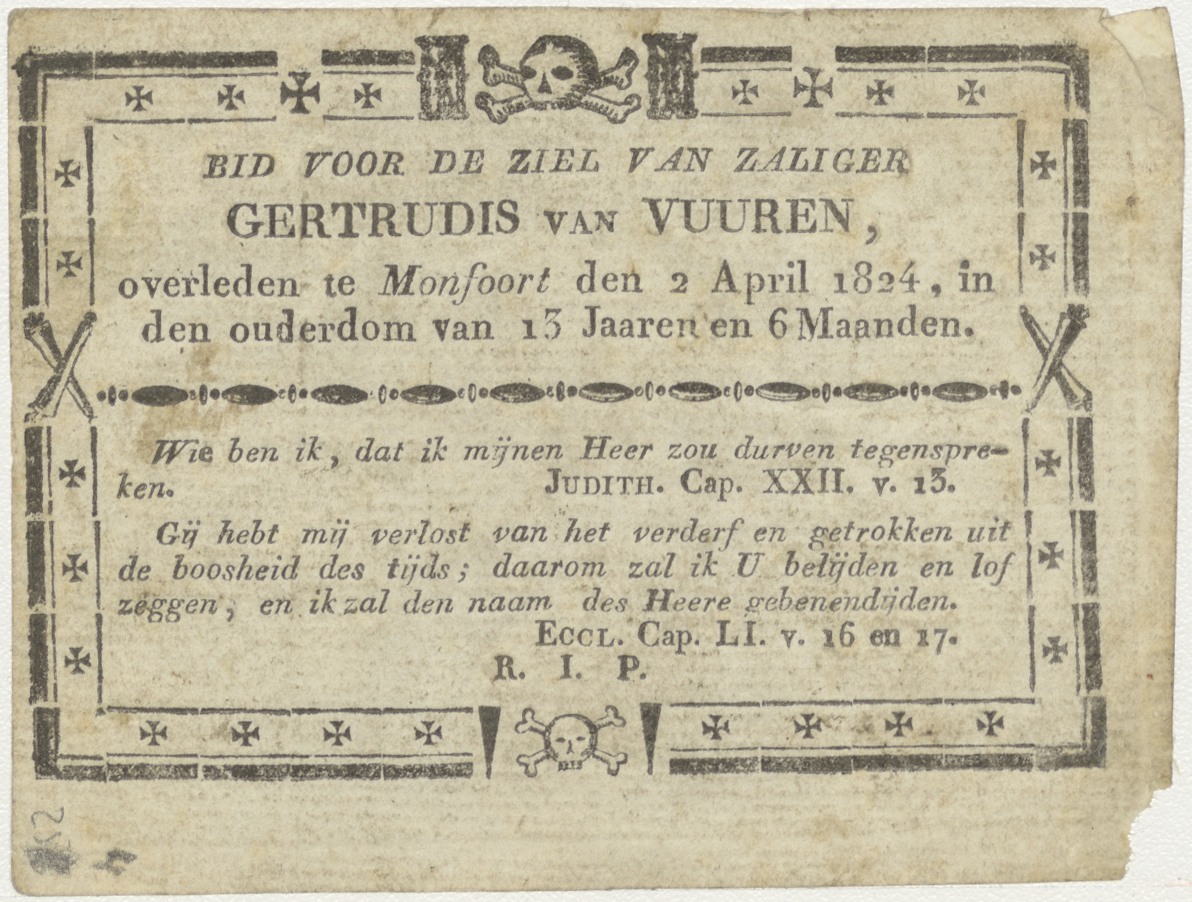 BID VOOR DE ZIEL VAN ZALIGER
GERTRUDIS VAN VUUREN,
overleden te Monfoort den 2 April 1824, in
den ouderdom van 13 Jaaren en 6 Maanden.
Wie ben ik, dat ik mijnen Heer zou durven tegenspre-
ken. JUDITH. Cap. XXII. v. 13.
Gij hebt mij verlost van het verderf en getrokken uit
de boosheid des tijds; daarom zal ik U belijden en lof
zeggen, en ik zal den naam des Heere gebenendijden.
ECCL. Cap. LI. v. 16 en 17.
R. I. P.